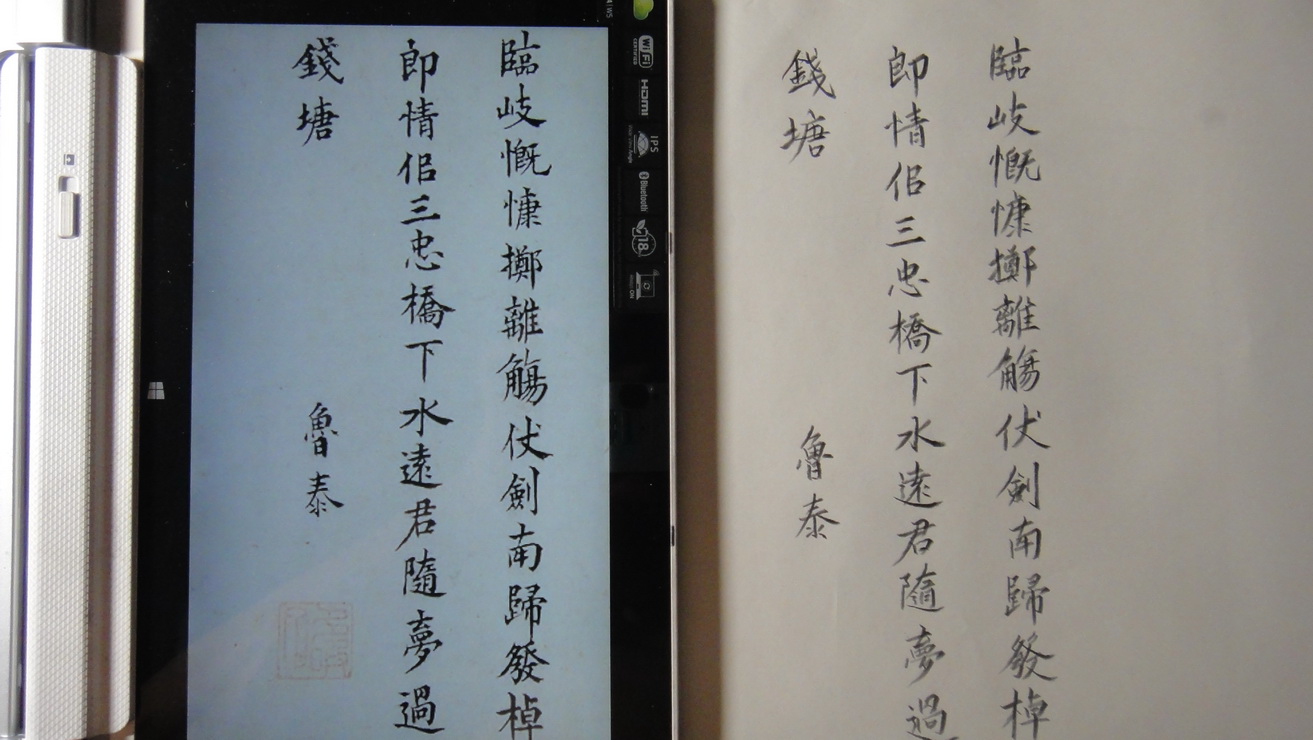 臨岐慨慷擲離觴伏劍南歸發棹
即情侶三忠橋下水遠君隨夢過
錢塘
魯泰
WiFi
CERTIFIED
HDMI
IPS
Bluetooth
18
臨岐慨慷擲離觴伏劍南歸發棹
即情侶三忠橋下水遠君隨夢過
錢塘
魯泰